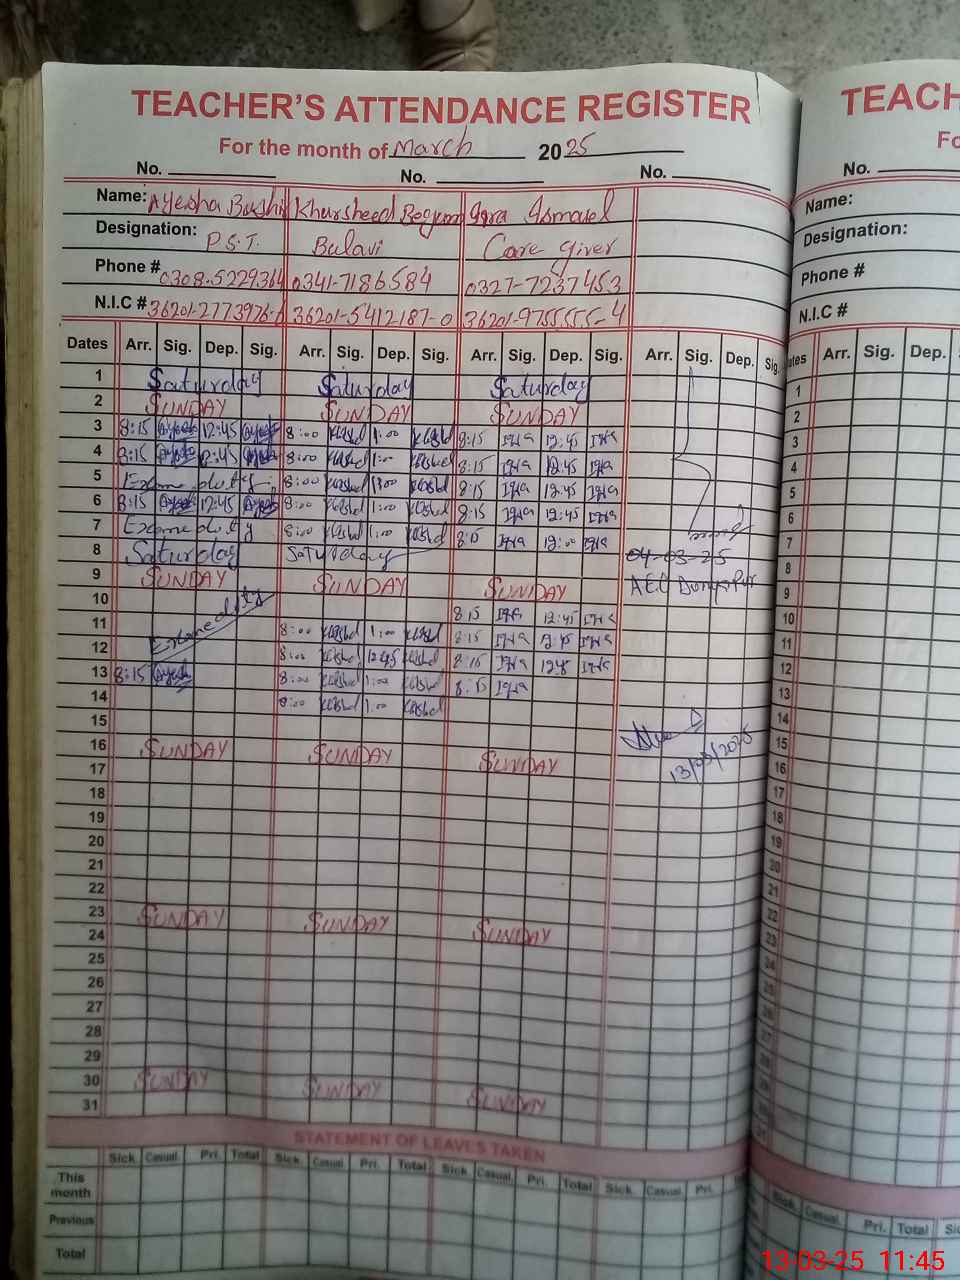 TEACHER'S ATTENDANCE REGISTER
TEACH
For the month of March 2025
Fo
No. No. No. No.
Name: Ayesha Bashi Khursheed Begum Iqra Ismael
Name:
Designation: P.S.T. Bulavi Care giver
Designation:
Phone # 0308-5229364 0341-7186584 0327-7237453
Phone #
N.I.C # 36201-2773976-6 36201-5412187-0 36201-9755555-4
N.I.C #
Dates Arr. Sig. Dep. Sig. Arr. Sig. Dep. Sig. Arr. Sig. Dep. Sig. Arr. Sig. Dep. Sig.
ates Arr. Sig. Dep.
1 Saturday Saturday Saturday
2 SUNDAY SUNDAY SUNDAY
3 8:15 Ayesha 12:45 Ayesha 8:00 1:00 8:15 Iqra 12:45 Iqra
4 8:15 Ayesha 12:45 Ayesha 8:00 1:00 8:15 Iqra 12:45 Iqra
5 Exame duty 8:00 1:00 8:15 Iqra 12:45 Iqra
6 8:15 Ayesha 12:45 Ayesha 8:00 1:00 8:15 Iqra 12:45 Iqra
7 Exame duty 8:00 1:00 8:15 Iqra 12:00 Iqra
8 Saturday Saturday 04-03-25
9 SUNDAY SUNDAY SUNDAY AEO Dunyapur
10 8:15 Iqra 12:45 Iqra
11 Exame duty 8:00 1:00 8:15 Iqra 12:45 Iqra
12 8:00 12:45 8:15 Iqra 12:45 Iqra
13 8:15 Ayesha 8:00 1:00 8:15 Iqra
14 8:00 1:00
15
16 SUNDAY SUNDAY SUNDAY 13/03/2025
17
18
19
20
21
22
23 SUNDAY SUNDAY SUNDAY
24
25
26
27
28
29
30 SUNDAY SUNDAY SUNDAY
31
1
2
3
4
5
6
7
8
9
10
11
12
13
14
15
16
17
18
19
20
21
22
23
24
STATEMENT OF LEAVES TAKEN
Sick Casual Pri. Total Sick Casual Pri. Total Sick Casual Pri. Total Sick Casual Pri.
Sick Casual Pri. Total Sic
This month
Previous
Total
13-03-25 11:45